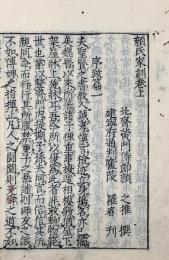 顏氏家訓卷上
北齊黃門侍郎顏之推撰
建寧府通判廬陵羅春刊
序致篇
夫聖賢之書教人誠孝慎言檢迹立身揚名亦已備
矣魏晉以來所著諸子理重事複遞相模斅猶屋下
架屋牀上施牀耳吾今所以復為此者非敢軌物範
世也業以整齊門內提撕子孫夫同言而信信其所
親同命而行行其所服禁童子之暴謔則師友之誡
不如傅婢之指揮止凡人之鬬鬩則堯舜之道不